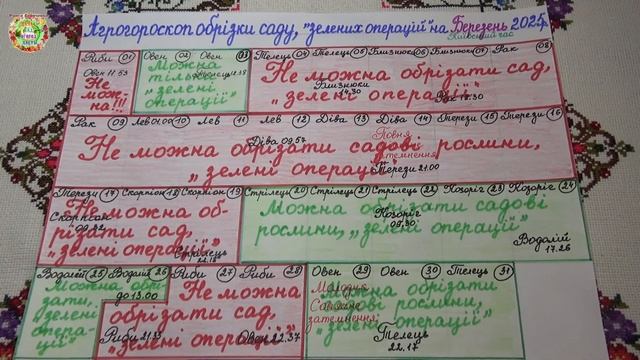 Агрогороскоп обрізки саду, "зелених операцій" на Березень 2025р.
Київський час
Риби 01 Овен 02 Овен 03 Телець 04 Телець 05 Близнюки 06 Близнюки 07 Рак 08
Овен 11.53
Не можна!!!
Можна тільки "зелені операції"
Не можна обрізати сад, "зелені операції"
Близнюки 14.30
Рак 17.30
Рак 09 Лев 10 Лев 11 Лев 12 Діва 13 Діва 14 Терези 15 Терези 16
Діва 09.57
Не можна обрізати садові рослини, "зелені операції"
Повня затемнення
Терези 21.00
Терези 17 Скорпіон 18 Скорпіон 19 Стрілець 20 Стрілець 21 Стрілець 22 Козоріг 23 Козоріг 24
Не можна обрізати сад, "зелені операції"
Скорпіон
Можна обрізати садові рослини, "зелені операції"
Козоріг
Водолій 17.26
Водолій 25 Водолій 26 Риби 27 Риби 28 Овен 29 Овен 30 Телець 31
до 13.00
Можна обрізати, "зелені операції"
Риби
Не можна обрізати сад, "зелені операції"
Овен 22.37
Можна обрізати садові рослини, "зелені операції"
затемнення
Телець 22.17